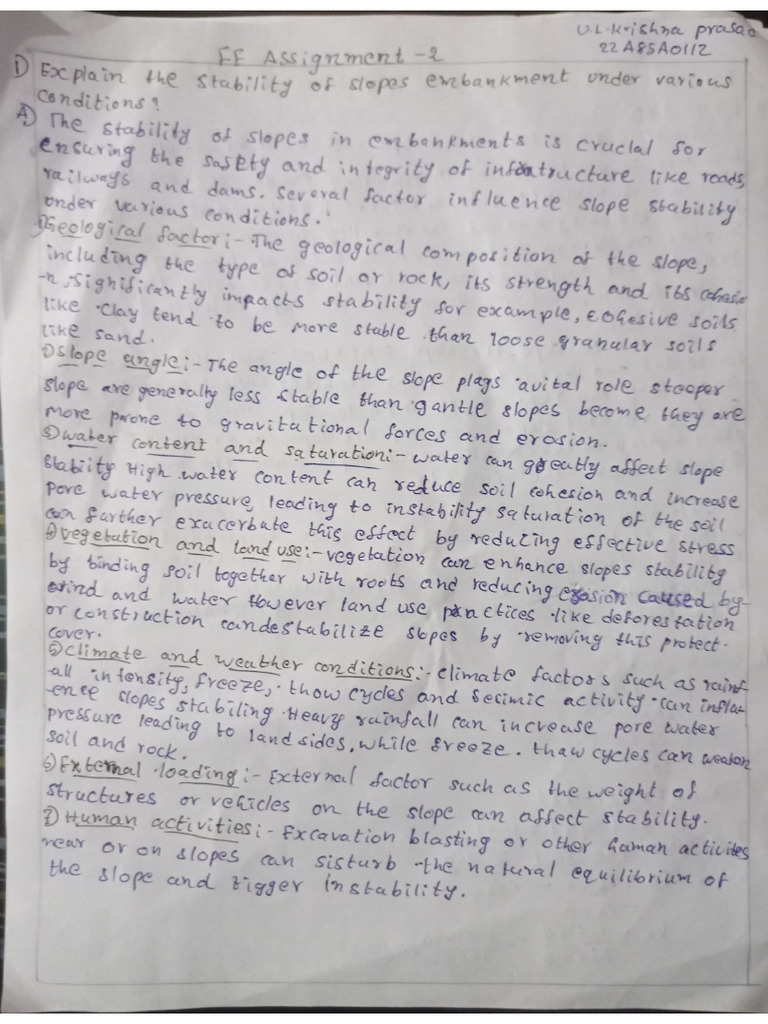 U.L.Krishna prasad
22A85A0112
FE Assignment -2
1) Explain the stability of slopes embankment under various
conditions?
A) The stability of slopes in embankments is crucial for
ensuring the safety and integrity of infratructure like roads,
railways and dams. Several factor influence slope stability
under various conditions.
1) Geological factor:- The geological composition of the slope,
including the type of soil or rock, its strength and its cohesio
-n, significantly impacts stability for example, cohesive soils
like clay tend to be more stable than loose granular soils
like sand.
2) Slope angle:- The angle of the slope plays avital role steeper
slope are generally less stable than gantle slopes become they are
more prone to gravitational forces and erosion.
3) water content and saturation:- water can greatly affect slope
stabiity High water content can reduce soil cohesion and increase
pore water pressure, leading to instability saturation of the soil
can farther exacerbate this effect by reducing effective stress
4) vegetation and land use:- vegetation can enhance slopes stability
by binding soil together with roots and reducing erosion caused by
wind and water However land use practices like deforestation
or construction candestabilize slopes by removing this protect-
cover.
5) Climate and weather conditions:- climate factors such as rainf-
all intensity, freeze, thow cycles and sesimic activity can influ-
ence slopes stabiling Heavy rainfall can increase pore water
pressure leading to land sides, while freeze. thaw cycles can weaken
soil and rock.
6) External loading:- External factor such as the weight of
structures or vehicles on the slope can affect stability.
7) Human activities:- Excavation blasting or other human activites
near or on slopes can sisturb the natural equilibrium of
the slope and tigger instability.